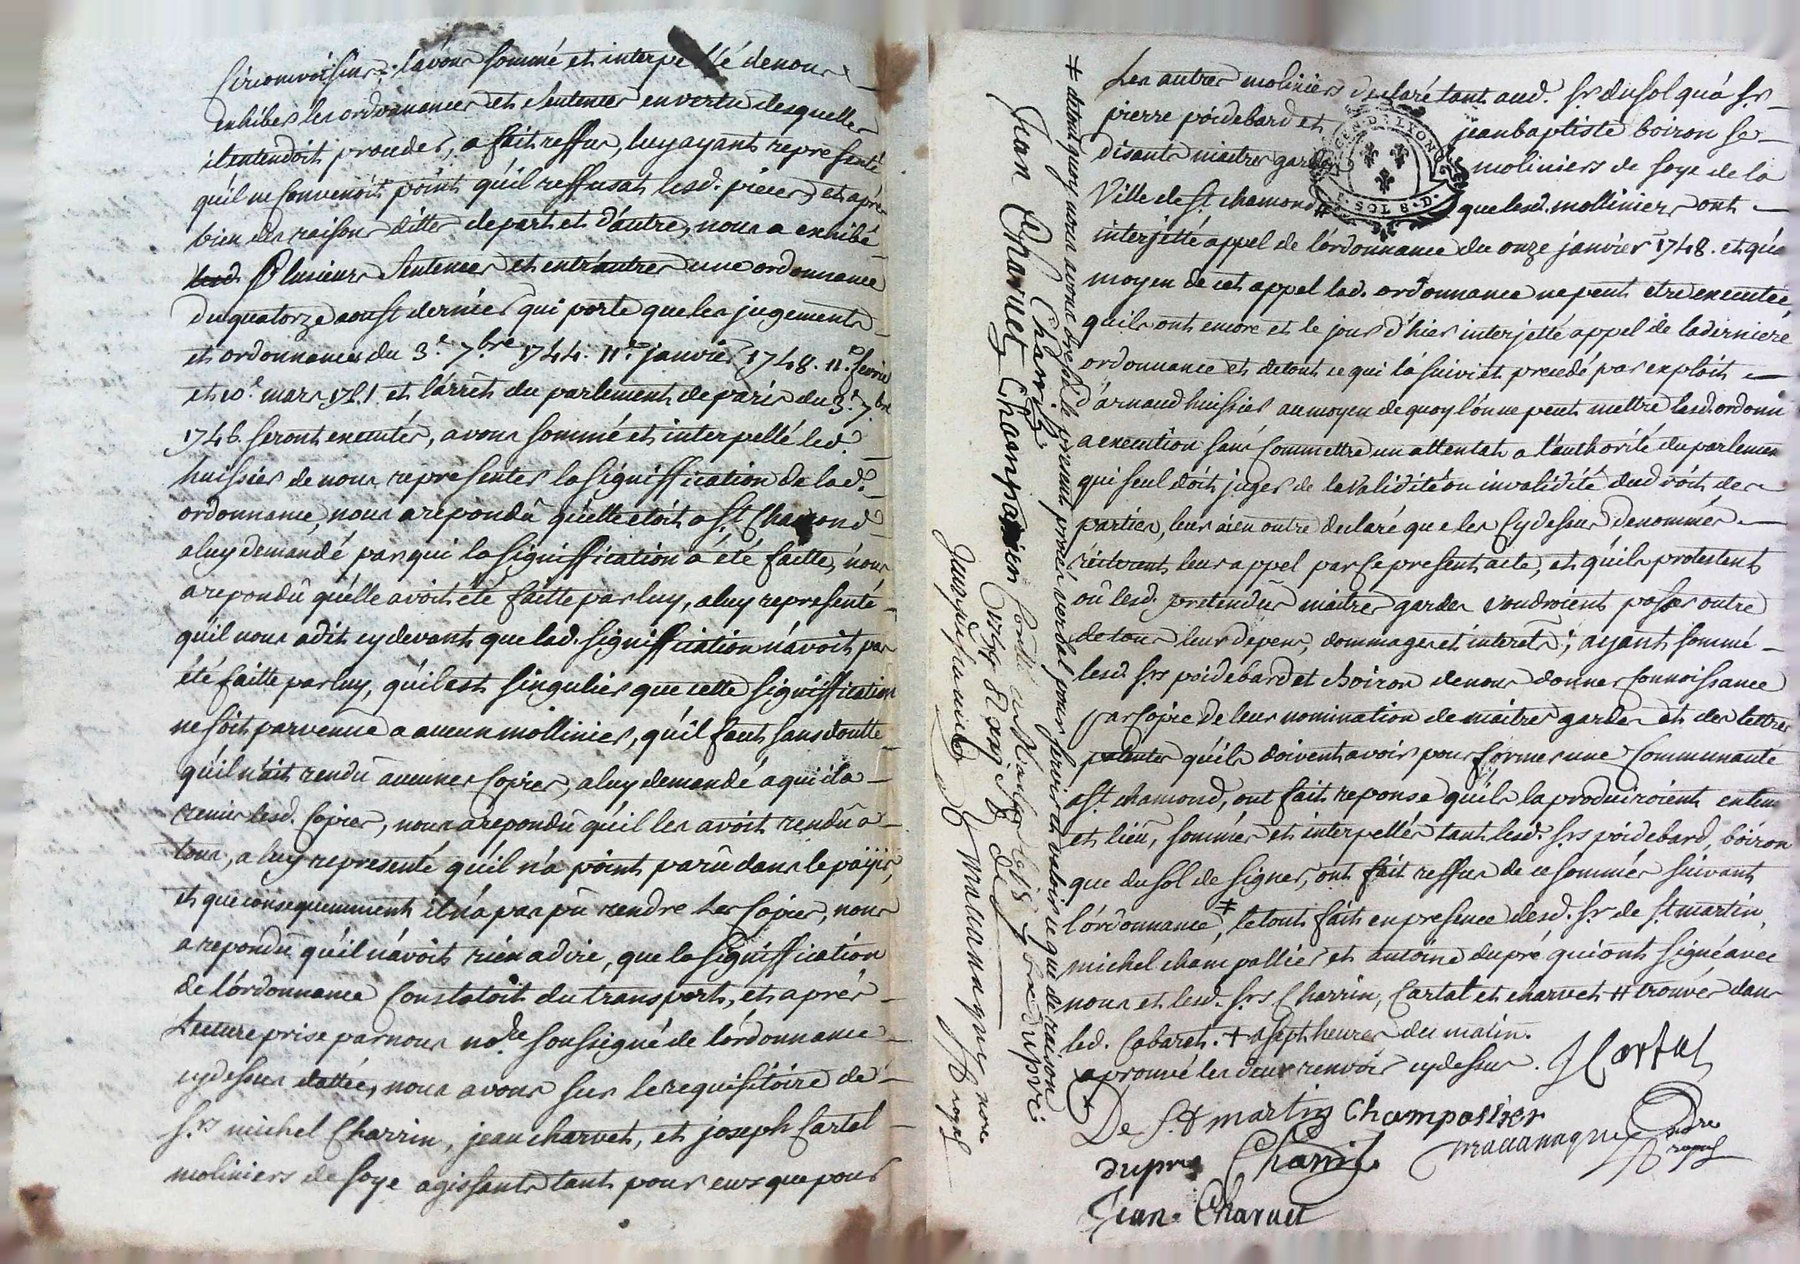 Circonvoisins. l'avons sommé et interpellé de nous
exhiber les ordonnances et sentences en vertu desquelles
il entendoit proceder, a fait reffus, luy ayant representé
qu'il ne convenoit point qu'il reffusat lesd. pieces, et aprés
bien des raisons dittes de part et d'autre, nous a exhibé
plusieurs sentences et entr'autres une ordonnance
du quatorze aoust dernier qui porte que les jugements
et ordonnances du 3.e 7.bre 1744. 11.e janvier 1748. 11.e fevrier
et 10.e mars 1751 et l'arrêt du parlement de paris du 3.e 7.bre
1746. seront executés, avons sommé et interpellé led.
huissier de nous representer la signiffication de lad.
ordonnance, nous a repondû qu'elle étoit a St. Chamond
a luy demandé par qui la signiffication a été faitte, nous
a repondû qu'elle avoit été faitte par luy, a luy representé
qu'il nous a dit cy devant que lad. signiffication n'avoit pas
été faitte par luy, qu'il est singulier que cette signiffication
ne soit parvenue a aucun mollinier, qu'il faut sans doutte
qu'il n'ait rendû aucunes copies, a luy demandé a qui il a
remis lesd. copies, nous a repondû qu'il les avoit rendû a
tous, a luy representé qu'il n'a point parû dans le païjis,
et que consequemment il n'a pas pû rendre les copies, nous
a repondû qu'il n'avoit rien a dire, que la signiffication
de l'ordonnance constatoit du transport, et aprés
lecture prise par nous no.re soussigné de l'ordonnance
cy dessus dattée, nous avons sur le requisitoire de
srs michel Charrin, jean charvet, et joseph Cartal
moliniers de soye agissants tant pour eux que pour
Les autres moliniers declaré tant aud. sr. dusol qu'a srs
pierre poidebard et jean baptiste boiron se
disants maitres gardes moliniers de soye de la
Ville de St. chamond # que lesd. molliniers ont
interjetté appel de l'ordonnance du onze janvier 1748. et qu'a
moyen de cet appel lad. ordonnance ne peut etre executée
qu'ils ont encore et le jour d'hier interjetté appel de la derniere
ordonnance et de tout ce qui l'a suivi et precedé par exploit
d'arnaud huissier au moyen de quoy l'on ne peut mettre lesd. ordonn
a execution sans commettre un attentat a l'authorité du parlemen
qui seul doit juger de la validité ou invalidité du droit des
parties, leur a en outre declaré que les cy dessus denommés
réiterent leur appel par ce present acte, et qu'ils protestent
où lesd. pretendûs maitres gardes voudroient passer outre
de tous leurs depens, dommages et interets; ayant sommé
lesd. srs poidebard et boiron de nous donner connoissance
par copie de leur nomination de maitres gardes et des lettres
patentes qu'ils doivent avoir pour former une Communauté
a St. chamond, ont fait reponse qu'ils la produiroient en tem
et lieu, sommés et interpellés tant lesd. srs poidebard, boiron
que dusol de signer, ont fait reffus de ce sommés suivant
l'ordonnance, # le tout fait en presence desd. sr. de st martin,
michel champallier et antoine dupré, qui ont signé avec
nous et lesd. srs Charrin, Cartal et charvet # trouvés dans
led. cabaret. + a sept heures du matin.
aprouvé les deux renvois cy dessus. J Cartal
De St martin Champallier
dupré Charrin maccanaque no.re royal
Jean Charvet
# de tout quoy nous avons dressé le present procés verbal pour servir et valoir ce que de raison
Jean Charvet Charrin